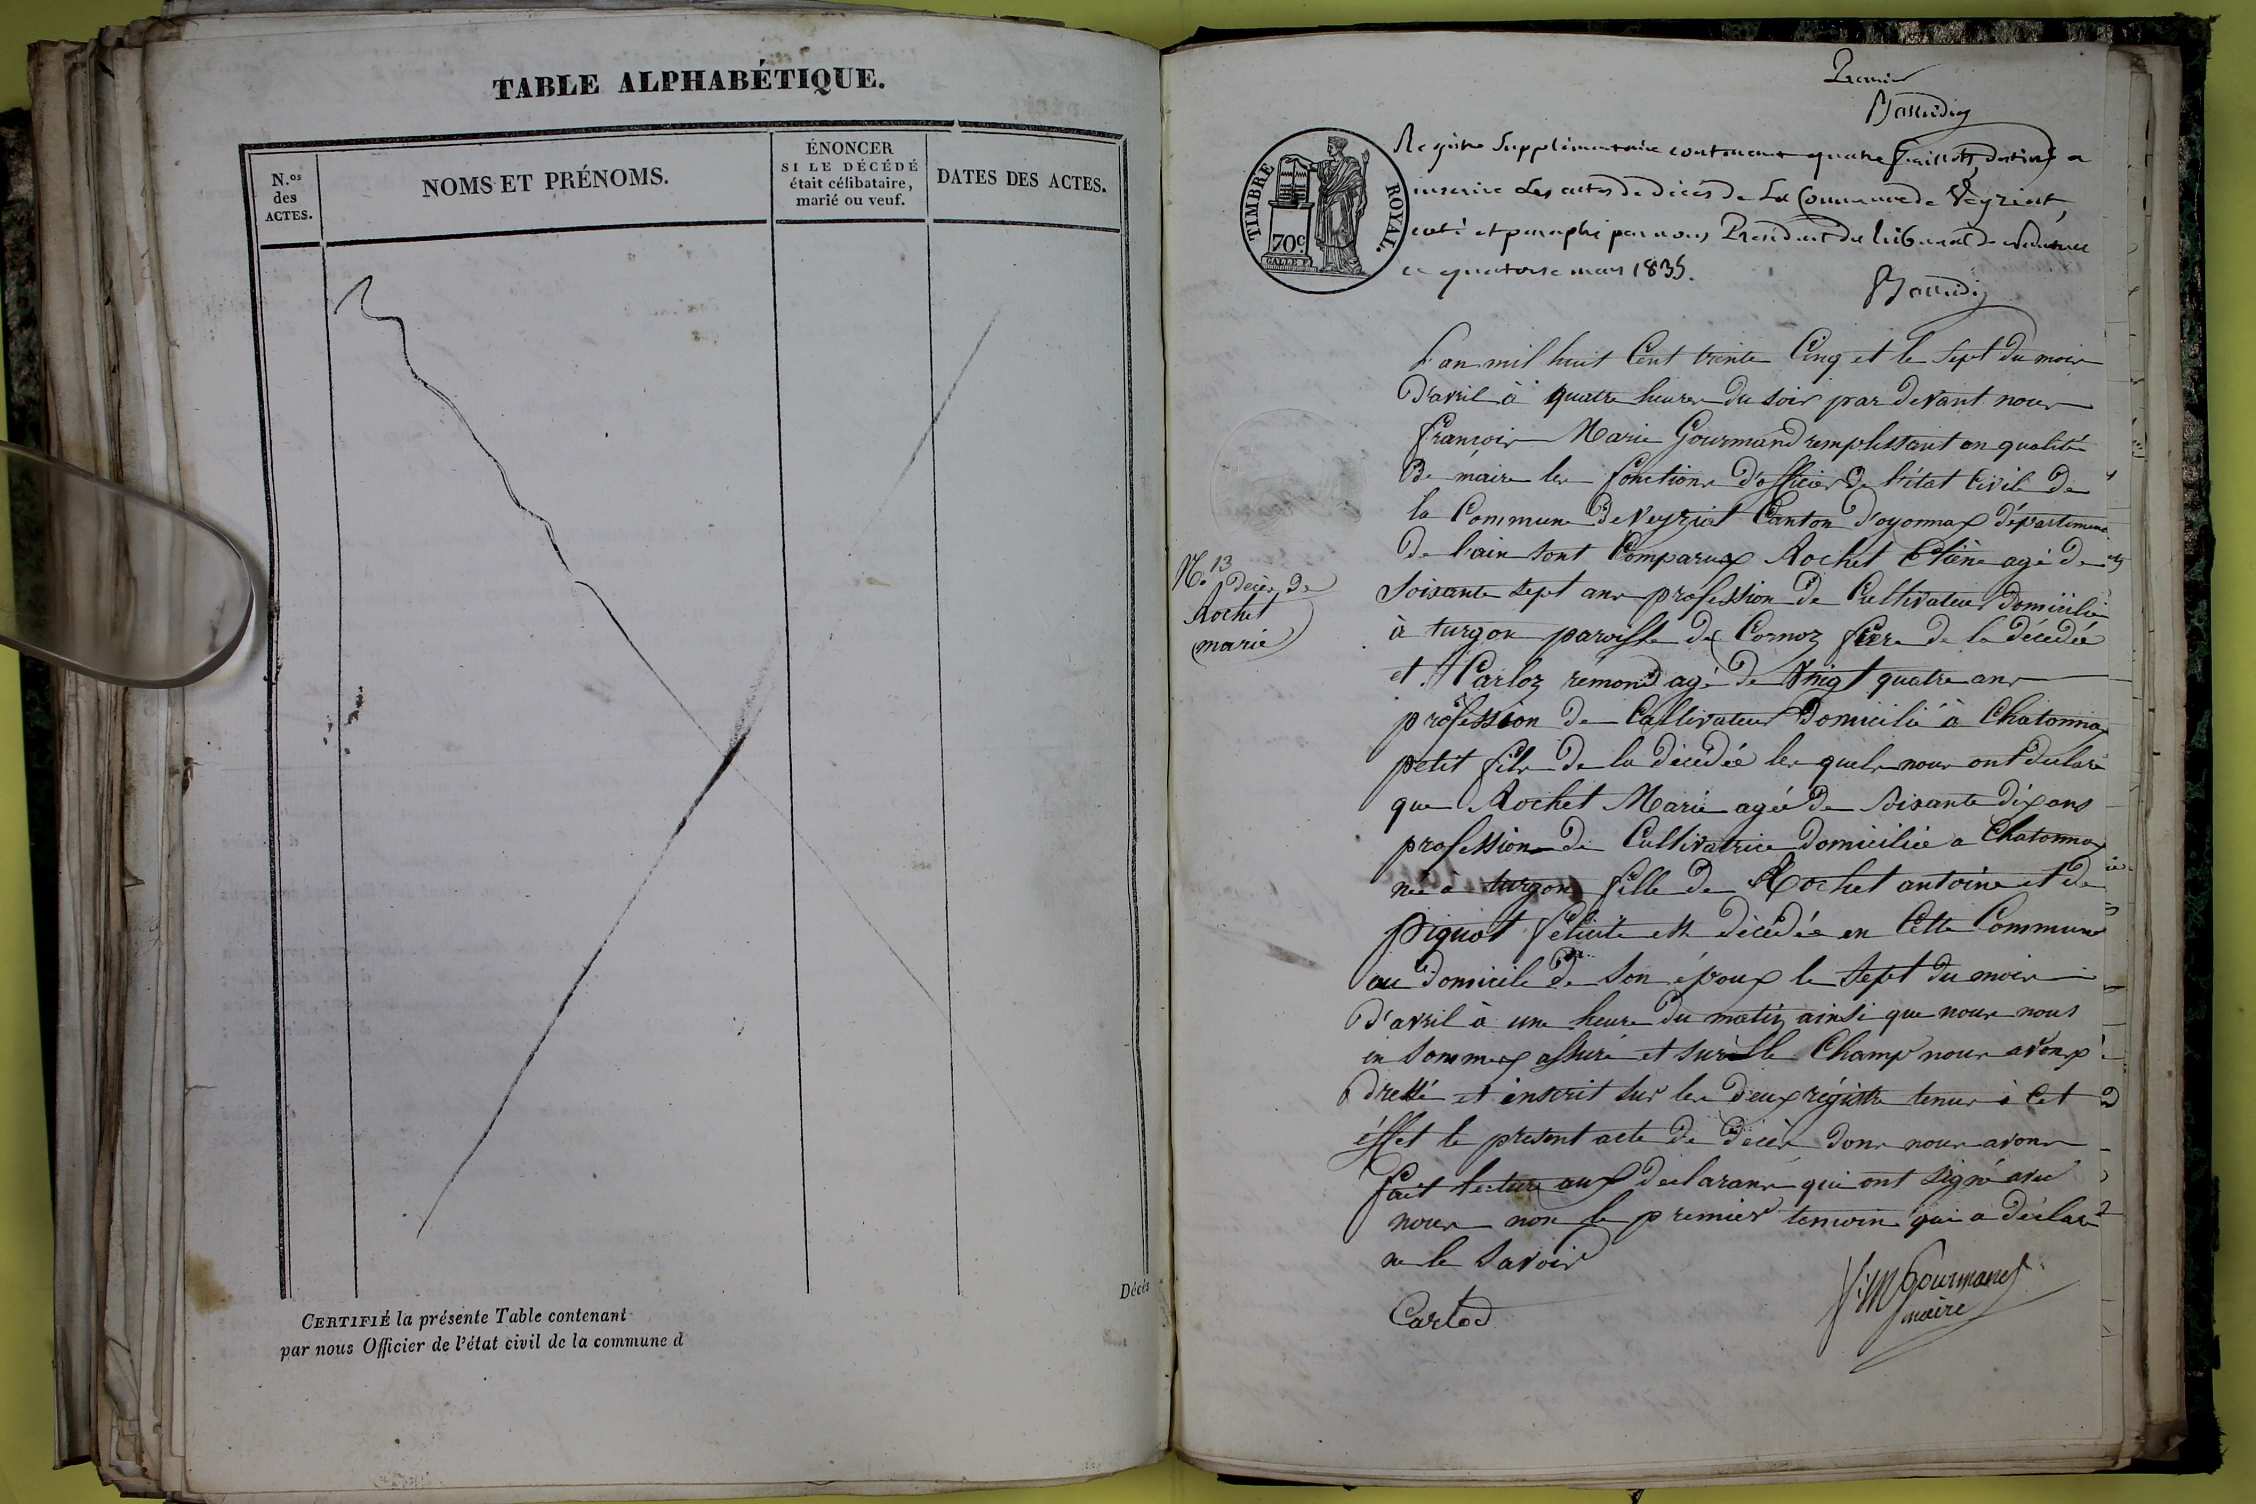 TABLE ALPHABÉTIQUE.
N.os
des
ACTES.
NOMS ET PRÉNOMS.
ÉNONCER
SI LE DÉCÉDÉ
était célibataire,
marié ou veuf.
DATES DES ACTES.
Décès
CERTIFIÉ la présente Table contenant
par nous Officier de l'état civil de la commune d
Premier
TIMBRE ROYAL.
70c
Registre Supplémentaire contenant quatre feuillets, destiné a
inscrire les actes de décès de La Commune de Veyziat,
coté et paraphé par nous Président du tribunal de
ce quatorze mars 1835.
L'an mil huit Cent trente Cinq et le Sept du mois
D'avril à quatre heures du soir par devant nous
françois Marie Gourmand remplissant en qualité
De maire les fonctions d'officier De l'état Civile De
la Commune De Veyziat Canton d'oyonnax département
De l'ain sont Comparux Rochet Etiène agé De
Soixante sept ans profession De Cultivateur Domicilié
à turgon paroisse de Cornoz frère de la décédée
et Carloz rémond agé De Vingt quatre ans
profession De Cultivateur Domicilié à Chatonnax
petit fils De la décédée les quels nous ont déclaré
que Rochet Marie agée De Soixante dix ans
profession De Cultivatrice Domiciliée a Chatonnax
née à turgon fille De Rochet antoine et De
piquot félicité est décédée en Cette Commune
au Domicile De Son époux le Sept du mois
D'avril à une heure Du matin ainsi que nous nous
en sommex assuré et sur le Champ nous avonx
Dressé et inscrit sur les Deux régistre tenus à Cet
éffet le présent acte De Décès dons nous avons
fait lecture aux déclarans qui ont signé avec
nous non le premier temoin qui a déclaré
ne le Savoir
N.º 13
Décès De
Rochet
marie
Carlod
f. M Gourmand
maire